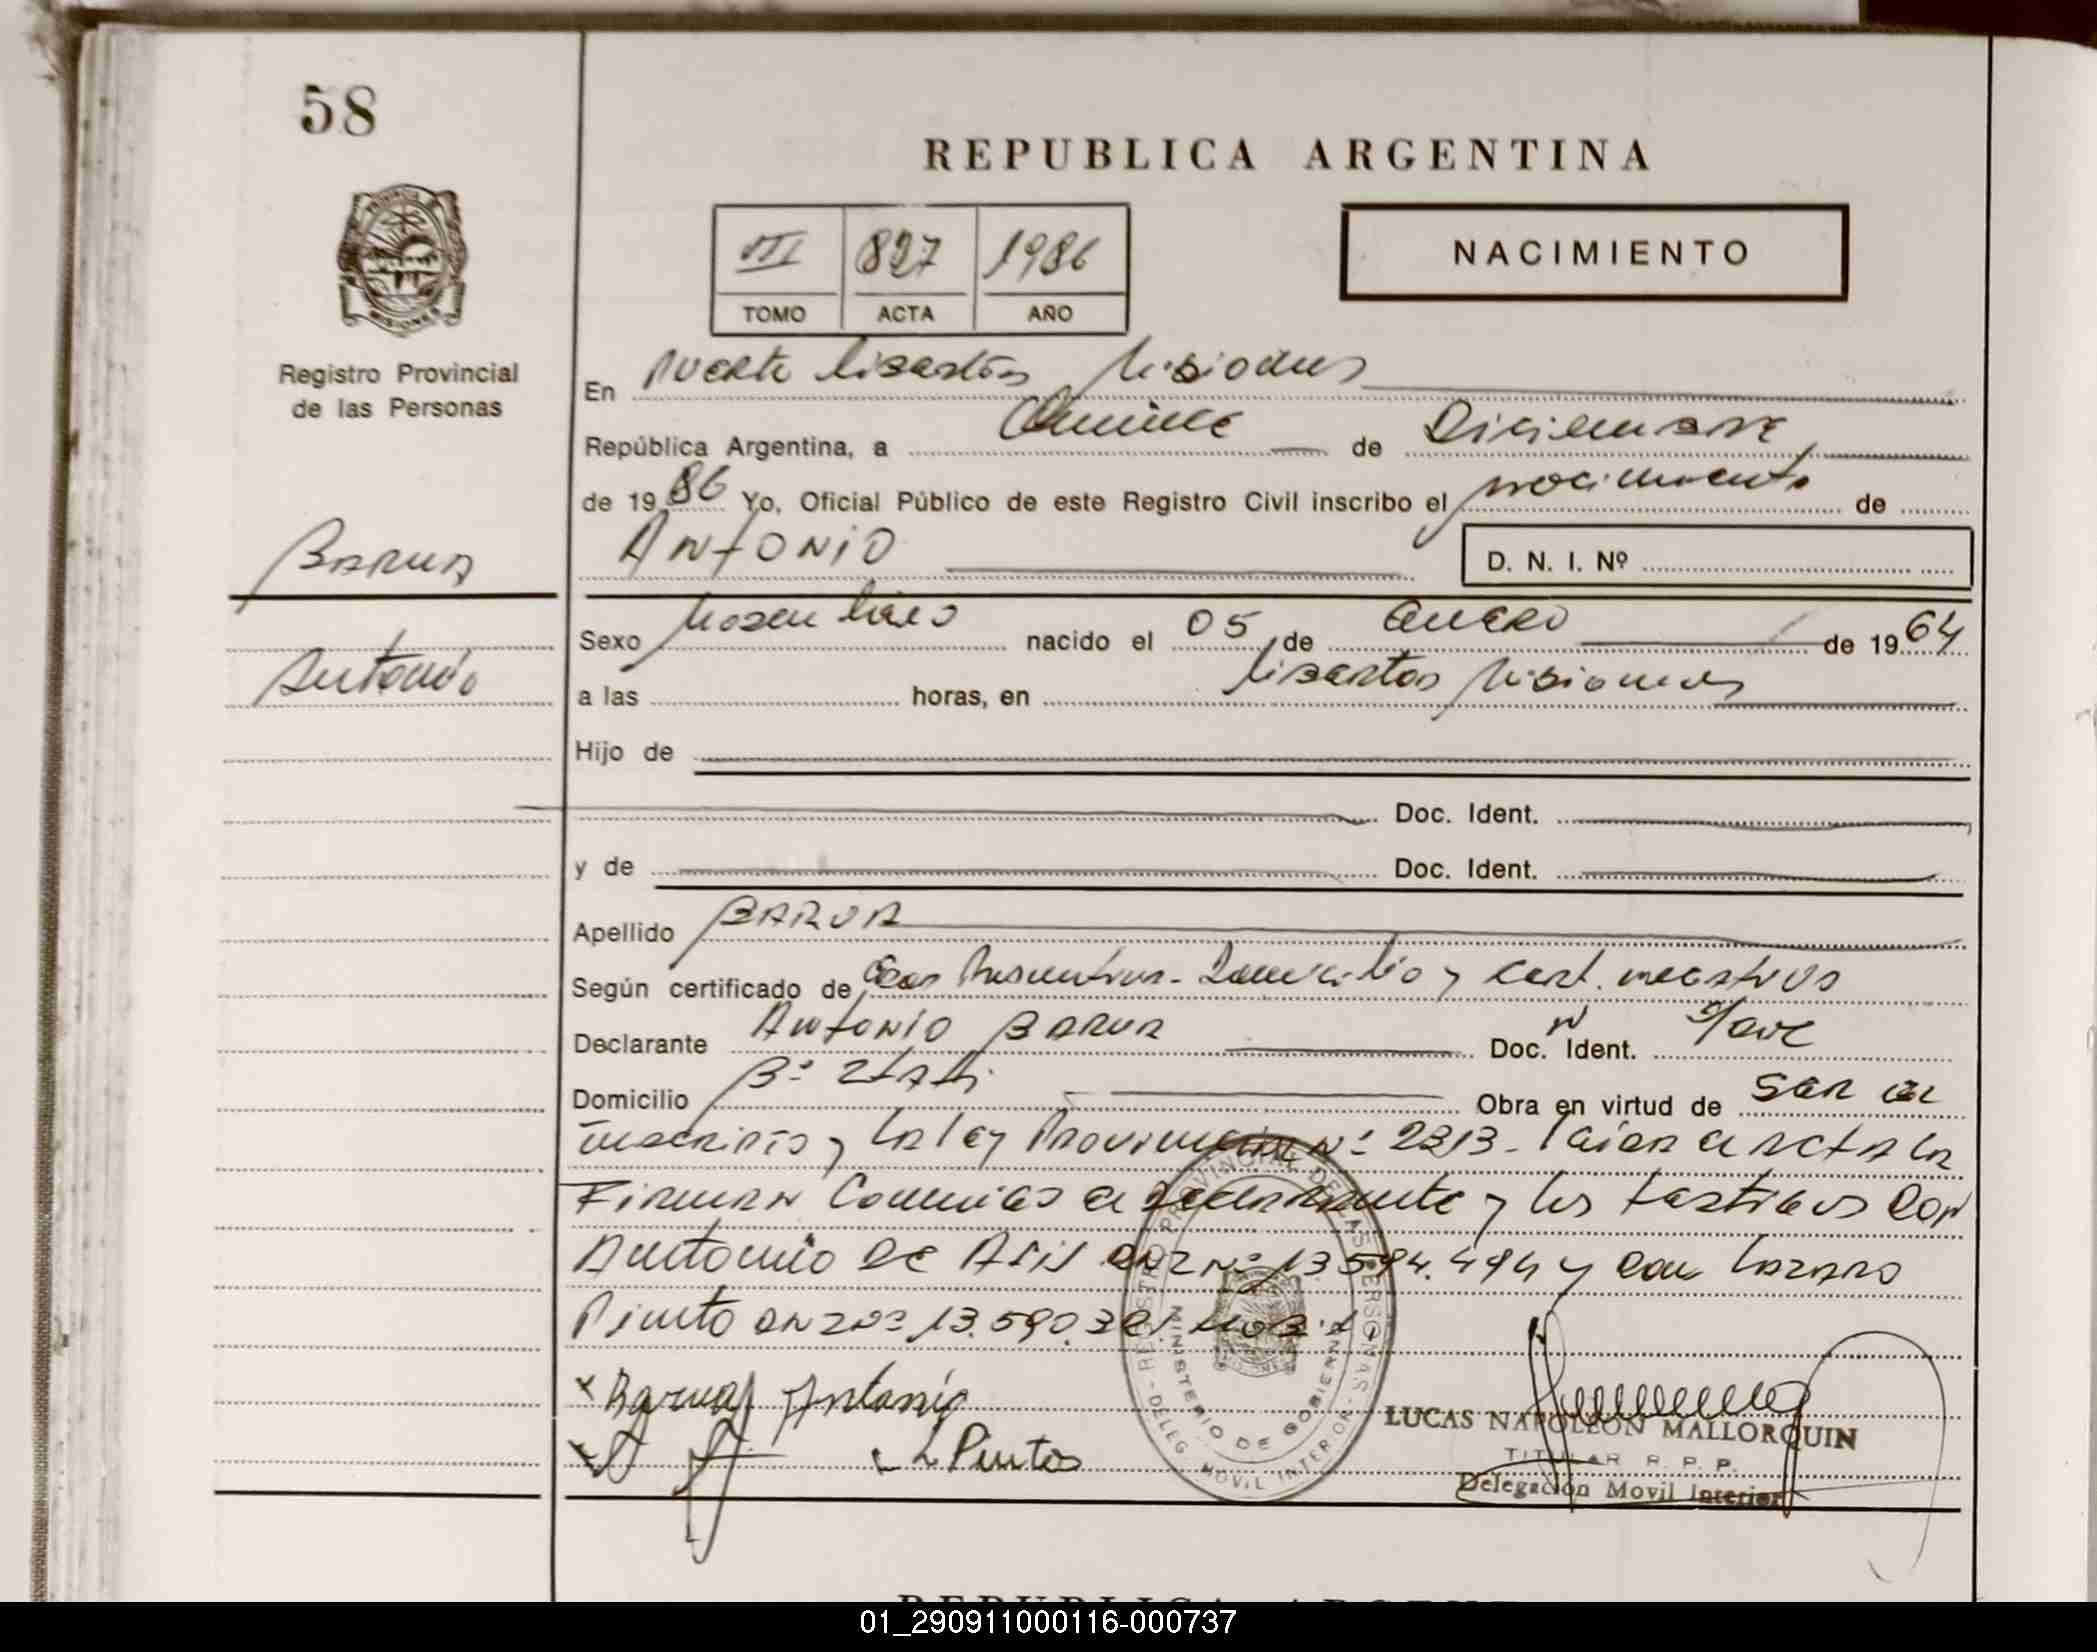 58
REPUBLICA ARGENTINA
III 827 1986
TOMO ACTA AÑO
NACIMIENTO
PROVINCIA
MISIONES
Registro Provincial
de las Personas
En Puerto Libertad Misiones
República Argentina, a Quince de Diciembre
de 1986 Yo, Oficial Público de este Registro Civil inscribo el nacimiento de
BARUA
ANTONIO
D. N. I. Nº
Antonio
Sexo Masculino nacido el 05 de Enero de 1964
a las horas, en Libertad Misiones
Hijo de
Doc. Ident.
y de Doc. Ident.
Apellido BARUA
Según certificado de Domicilio y cert. negativos
Declarante ANTONIO BARUA Doc. Ident.
Domicilio Bº Obra en virtud de SER el
inscripto y la ley Provincial Nº 2313- Leida el ACTA la
Firman Conmigo el Declarante y los testigos Don
Antonio de Asis DNI Nº 13594.494 y Don Lazaro
Pinto DNI Nº 13.590.
x Barua Antonio
L Pintos
REGISTRO PROVINCIAL DE LAS PERSONAS
MINISTERIO DE GOBIERNO
DELEG. MOVIL INTERIOR
LUCAS NAPOLEON MALLORQUIN
TITULAR R. P. P.
Delegación Movil Interior
REPUBLICA ARGENT
01_290911000116-000737